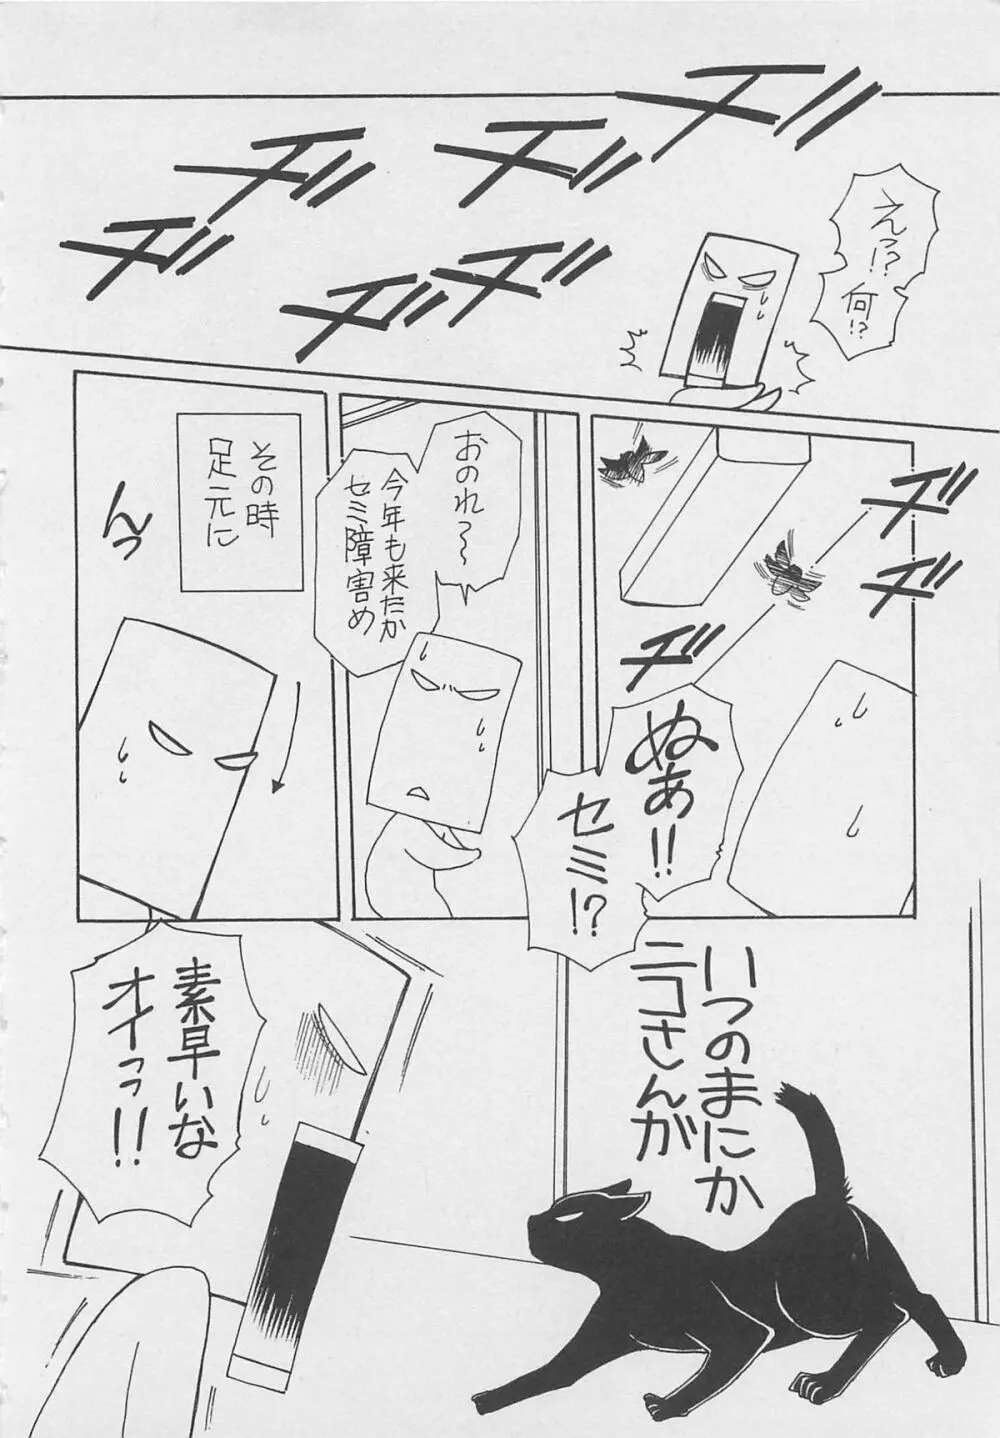 ヂッ
ヂッ
ヂッ
ヂッ
ヂッ
ヂッ
えっ!?
何!?
ヂッ
ヂッ
ヂッ
ぬあ!!
セミ!?
おのれ〜〜
今年も来たか
セミ障害め
その時
足元に
んっ
いつのまにか
ニコさんが
素早いな
オイっっ!!